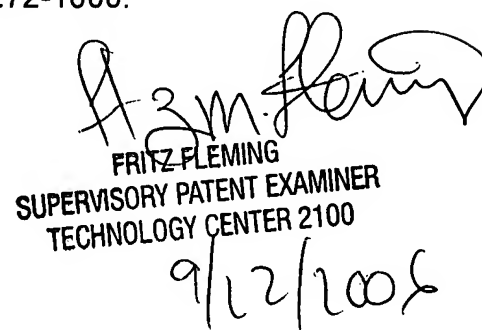 272-1000.
Fritz M. Fleming
FRITZ FLEMING
SUPERVISORY PATENT EXAMINER
TECHNOLOGY CENTER 2100
9/12/2006